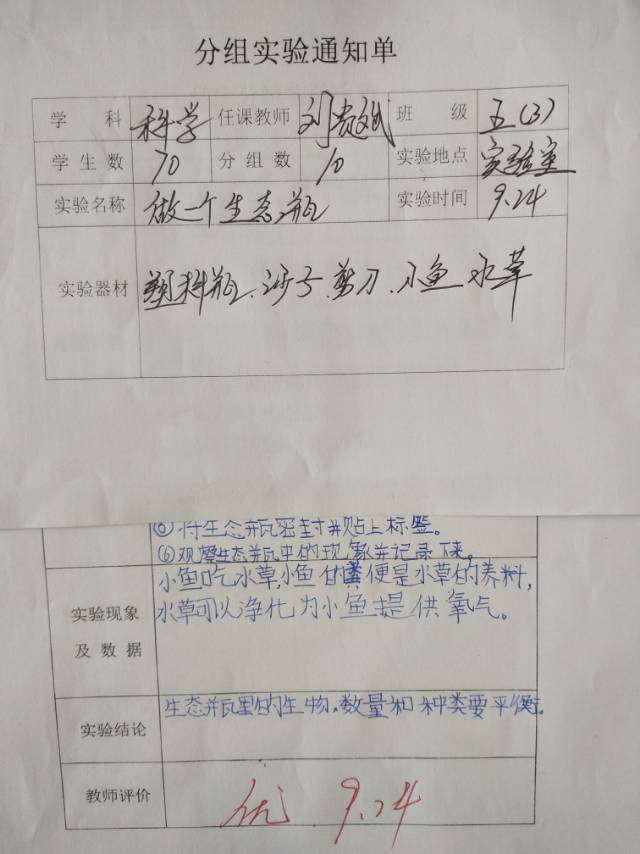 分组实验通知单
学 科 科学 任课教师 刘贵斌 班 级 五(3)
学生数 70 分组数 10 实验地点 实验室
实验名称 做一个生态瓶 实验时间 9.24
实验器材 塑料瓶、沙子、剪刀、小鱼 水草
将生态瓶密封并贴上标签。
⑥观察生态瓶中的现象并记录下来。
小鱼吃水草,小鱼的粪便是水草的养料,
实验现象 水草可以净化为小鱼提供氧气。
及数据
实验结论 生态瓶里的生物,数量和种类要平衡.
教师评价 优 9.24